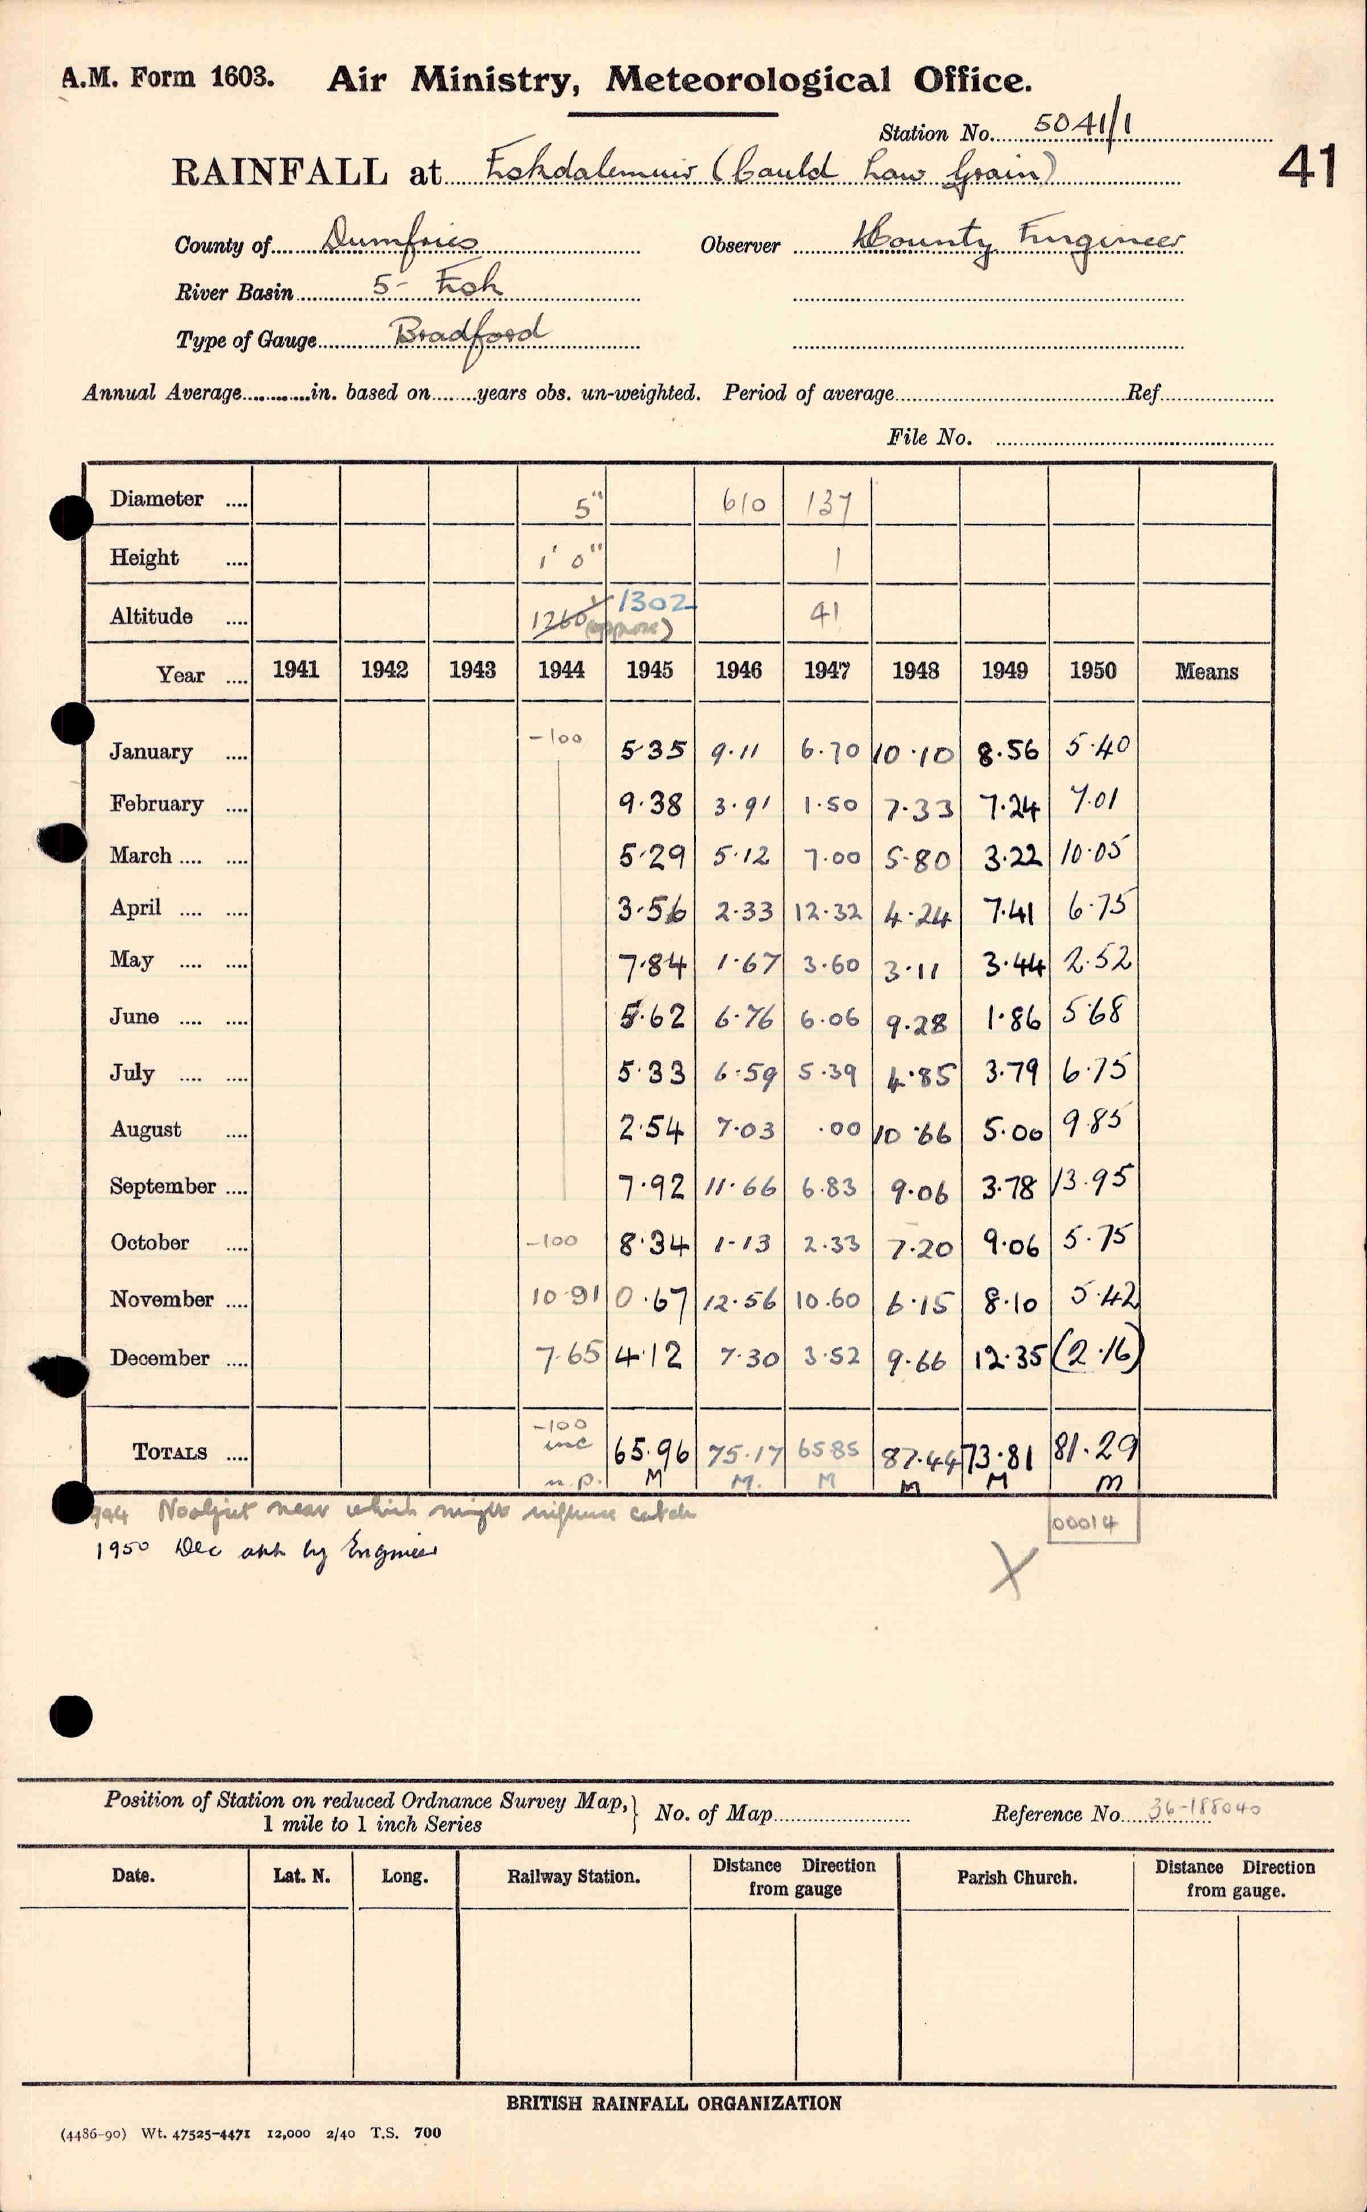 A.M. Form 1603. Air Ministry, Meteorological Office.
Station No. 5041/1
41
RAINFALL at Eskdalemuir (Cauld Law Grain)
County of Dumfries Observer County Engineer
River Basin 5- Esk
Type of Gauge Bradford
Annual Average in. based on years obs. un-weighted. Period of average Ref.
File No.
Diameter 5" 610 137
Height 1' 0" 1
Altitude 1260 (approx) 1302 41
Year 1941 1942 1943 1944 1945 1946 1947 1948 1949 1950 Means
January -100 5.35 9.11 6.70 10.10 8.56 5.40
February 9.38 3.91 1.50 7.33 7.24 7.01
March 5.29 5.12 7.00 5.80 3.22 10.05
April 3.56 2.33 12.32 4.24 7.41 6.75
May 7.84 1.67 3.60 3.11 3.44 2.52
June 5.62 6.76 6.06 9.28 1.86 5.68
July 5.33 6.59 5.39 4.85 3.79 6.75
August 2.54 7.03 .00 10.66 5.00 9.85
September 7.92 11.66 6.83 9.06 3.78 13.95
October -100 8.34 1.13 2.33 7.20 9.06 5.75
November 10.91 0.67 12.56 10.60 6.15 8.10 5.42
December 7.65 4.12 7.30 3.52 9.66 12.35 (2.16)
TOTALS -100 inc n.p. 65.96 M 75.17 M. 65.85 M 87.44 M 73.81 M 81.29 M
1944 No object near which might influence catch
00014
1950 Dec by Engineer
X
Position of Station on reduced Ordnance Survey Map, 1 mile to 1 inch Series } No. of Map Reference No. 36-188040
Date. Lat. N. Long. Railway Station. Distance Direction from gauge Parish Church. Distance Direction from gauge.
BRITISH RAINFALL ORGANIZATION
(4486-90) Wt. 47525-4471 12,000 2/40 T.S. 700